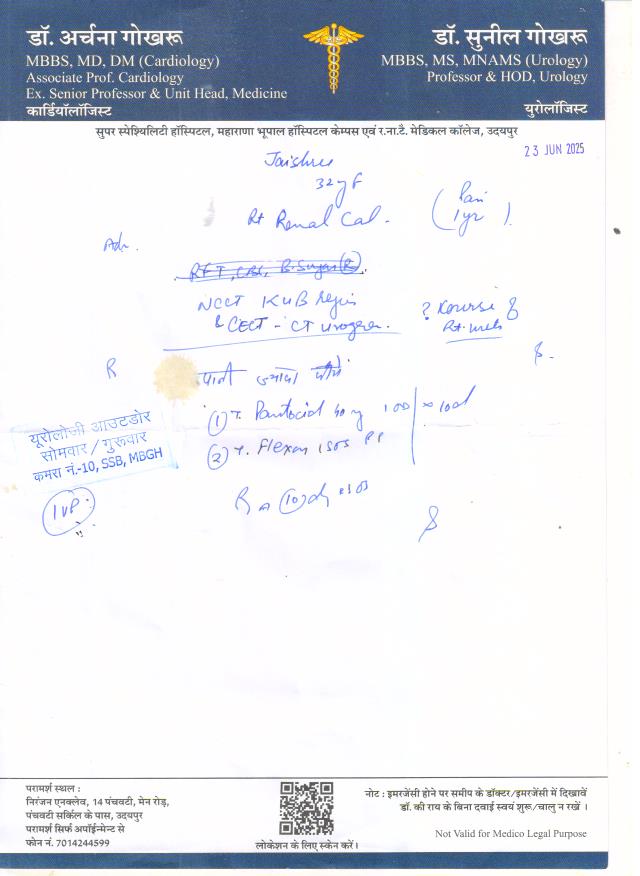 डॉ. अर्चना गोखरू
MBBS, MD, DM (Cardiology)
Associate Prof. Cardiology
Ex. Senior Professor & Unit Head, Medicine
कार्डियॉलॉजिस्ट
डॉ. सुनील गोखरू
MBBS, MS, MNAMS (Urology)
Professor & HOD, Urology
युरोलॉजिस्ट
सुपर स्पेशियलिटी हॉस्पिटल, महाराणा भूपाल हॉस्पिटल केम्पस एवं र.ना.टै. मेडिकल कॉलेज, उदयपुर
23 JUN 2025
Jaishree
32 yf
Rt Renal Cal. (Pain 1yr).
Adv.
RFT, CBC, B.Sugar (R).
NCCT KUB region
& CECT - CT urogram.
? Course of
Rt. 
R
पानी ज्यादा पीये
(1) T. Pantocid 40 mg 1 OD x 10d
(2) T. Flexon 1 SOS
R (10)d SOS
यूरोलोजी आउटडोर
सोमवार / गुरूवार
कमरा नं.-10, SSB, MBGH
IVP
परामर्श स्थल :
निरंजन एनक्लेव, 14 पंचवटी, मेन रोड़,
पंचवटी सर्किल के पास, उदयपुर
परामर्श सिर्फ अपॉईन्मेन्ट से
फोन नं. 7014244599
लोकेशन के लिए स्केन करें।
नोट : इमरजेंसी होने पर समीप के डॉक्टर/इमरजेंसी में दिखावें
डॉ. की राय के बिना दवाई स्वयं शुरू/चालु न रखें ।
Not Valid for Medico Legal Purpose